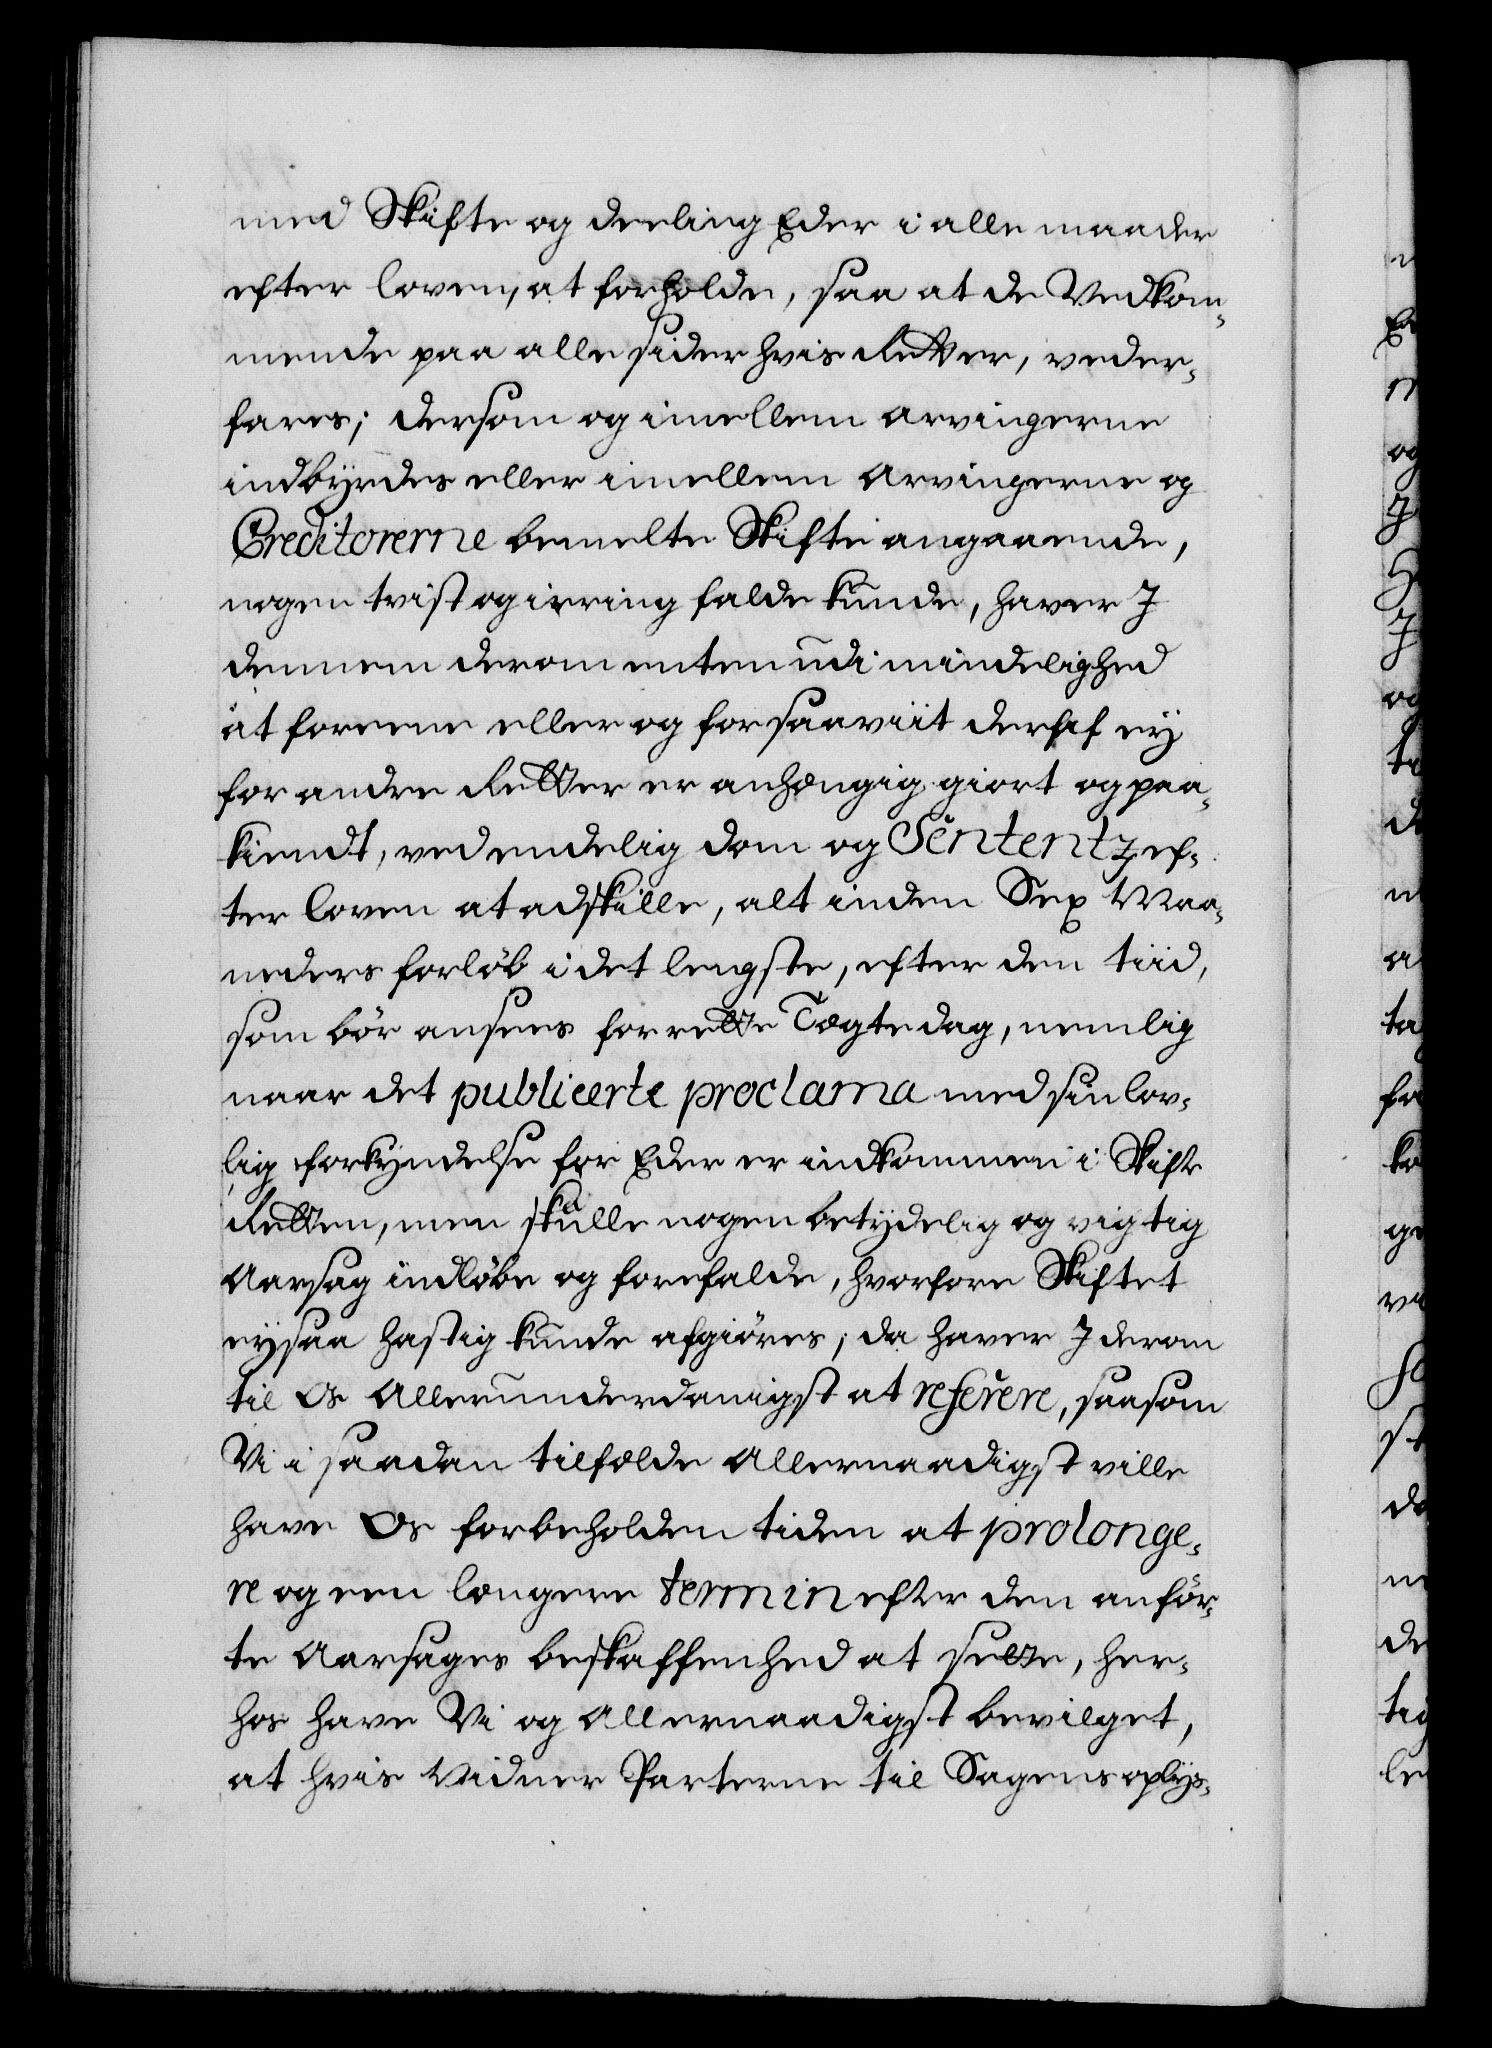 med Skifte og deeling Eder i alle maader
efter loven, at forholde, saa at de Vedkom-
mende paa alle sider hvis Retter, veder-
fares; dersom og imellem arvingerne
indbÿrdes eller imellem Arvingerne og
Creditorerne bemelte Skifte angaaende,
nogen tvist og irring falde kunde, haver I
dennem derom enten udi mindelighed
at foreene eller og forsaaviit deraf eÿ
for andre Retter er anhængig giort og paa-
kiendt, ved endelig dom og Sententz ef-
ter loven at adskille, alt inden Sex Maa-
neders forløb i det lengste, efter den tiid,
som bör ansees for rette Tægtedag, nemlig
naar det publicerte proclama med sin lov-
lig forkyndelse for Eder er indkommen i Skifte
Retten, men skulle nogen betÿdelig og vigtig
Aarsag indløbe og forefalde, hvorfore Skiftet
eÿ saa hastig kunde afgiöres, da haver I derom
til Os Allerunderdanigst at referere, saasom
Vi i saadan tilfælde Allernaadigst ville
have Os forbeholden tiden at prolonge-
re og een længere termin efter den anför-
te Aarsages beskaffenhed at sette, her-
hos have Vi og Allernaadigst bevilget,
at hvis Vidner Parterne til Sagens oplÿs-